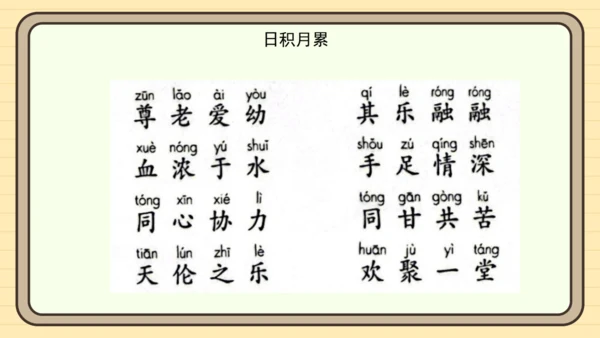 日积月累
zūn lǎo ài yòu qí lè róng róng
尊老爱幼 其乐融融
xuè nóng yú shuǐ shǒu zú qíng shēn
血浓于水 手足情深
tóng xīn xié lì tóng gān gòng kǔ
同心协力 同甘共苦
tiān lún zhī lè huān jù yì táng
天伦之乐 欢聚一堂